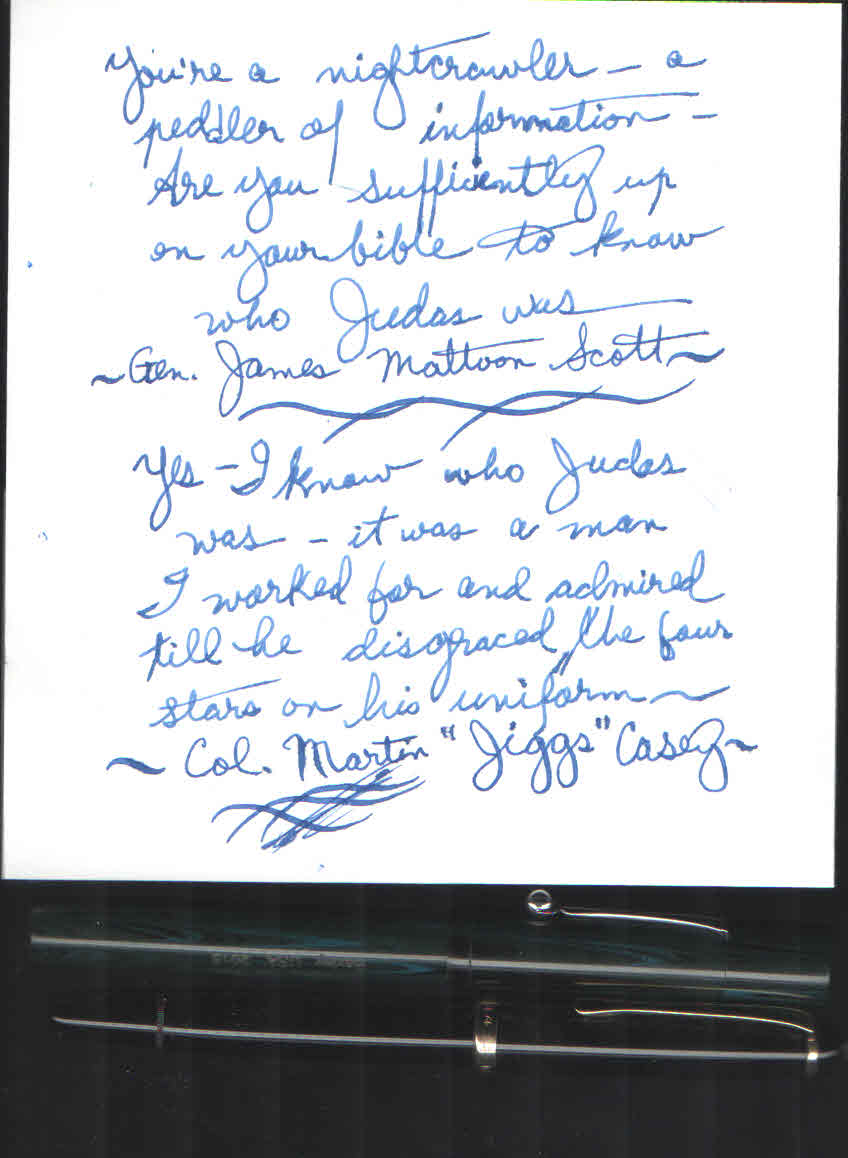 You're a nightcrawler - a
peddler of information -
Are you sufficiently up
on your bible to know
who Judas was
~Gen. James Mattoon Scott~
Yes - I know who Judas
was - it was a man
I worked for and admired
till he disgraced the four
stars on his uniform~
~ Col. Martin "Jiggs" Casey~